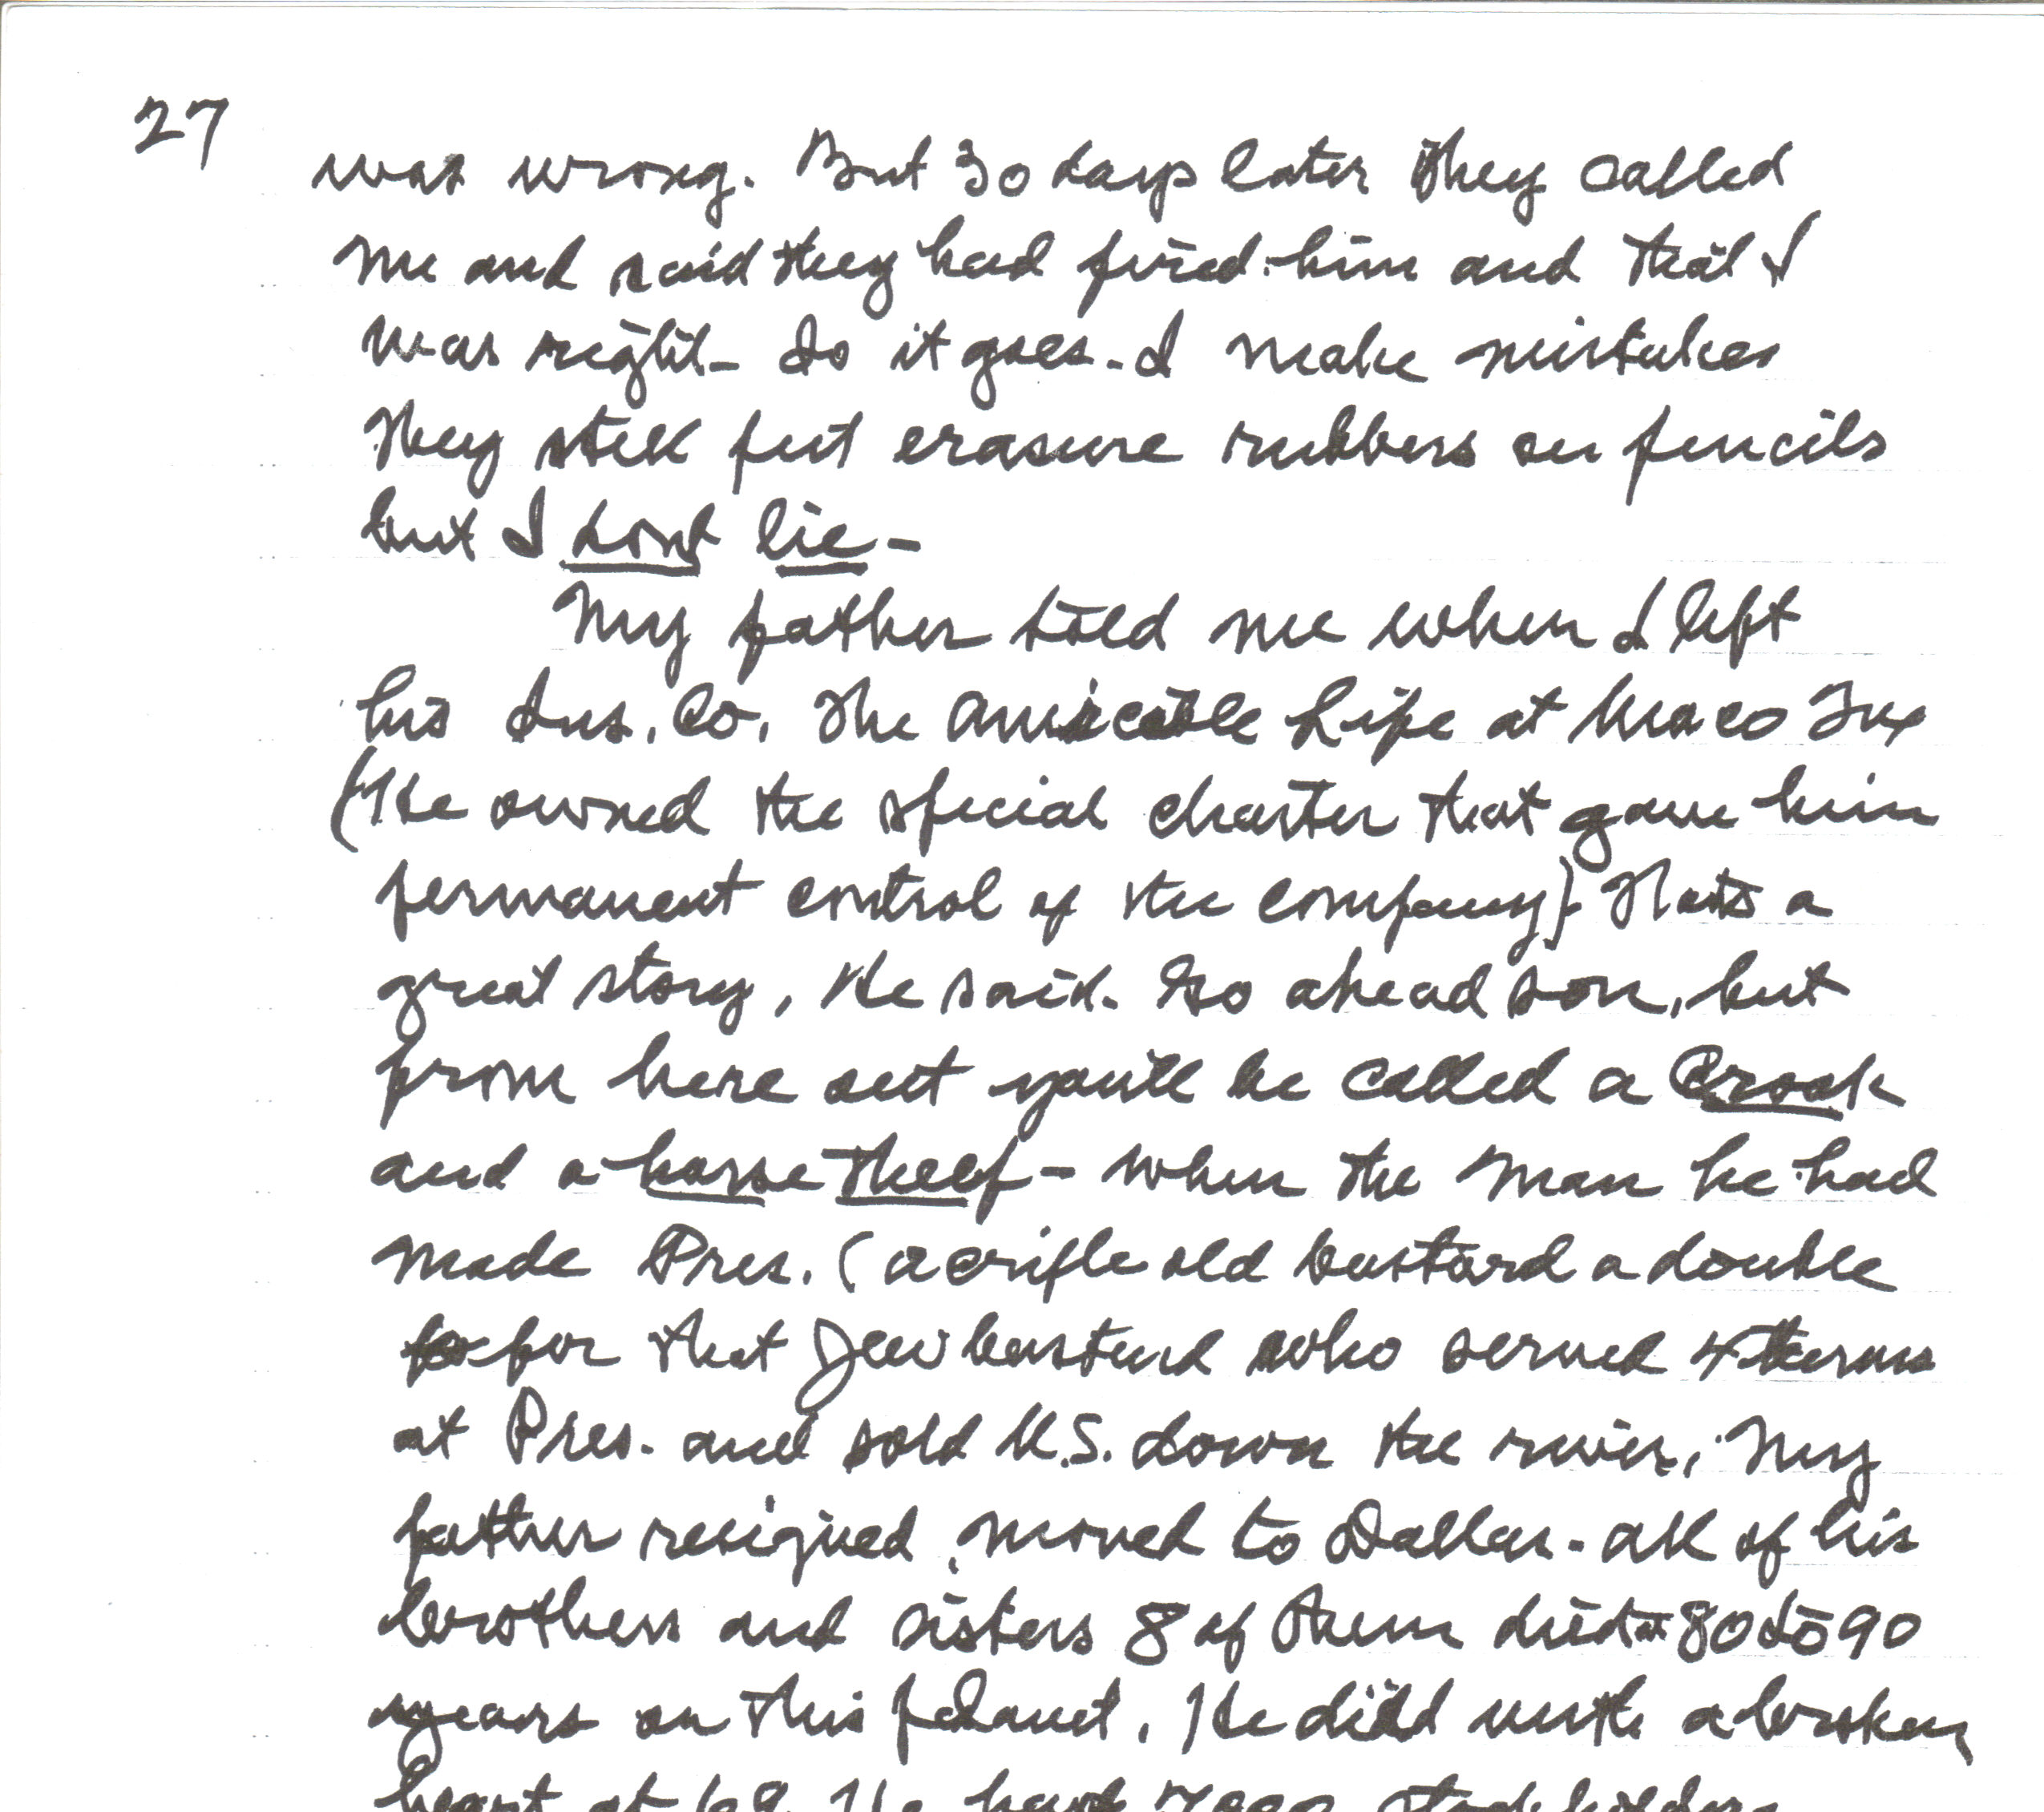 27
was wrong. But 30 days later they called
me and said they had fired him and that I
was right - So it goes - I make mistakes
They still put erasure rubbers on pencils
but I dont lie -
My father told me when I left
his Ins. Co. The Amicable Life at Waco Tex
(He owned the special charter that gave him
permanent control of the company) Thats a
great story, He said. Go ahead son, but
from here out you'll be called a Crook
and a horse theef - when the man he had
made Pres. (a cripple old bastard a double
for that Jew bastard who served 4 terms
at Pres. and sold U.S. down the river, My
father resigned, moved to Dallas - all of his
brothers and sisters 8 of them died at 80 to 90
years on this planet. He died with a broken
heart at 69. He had 7000 stockholders